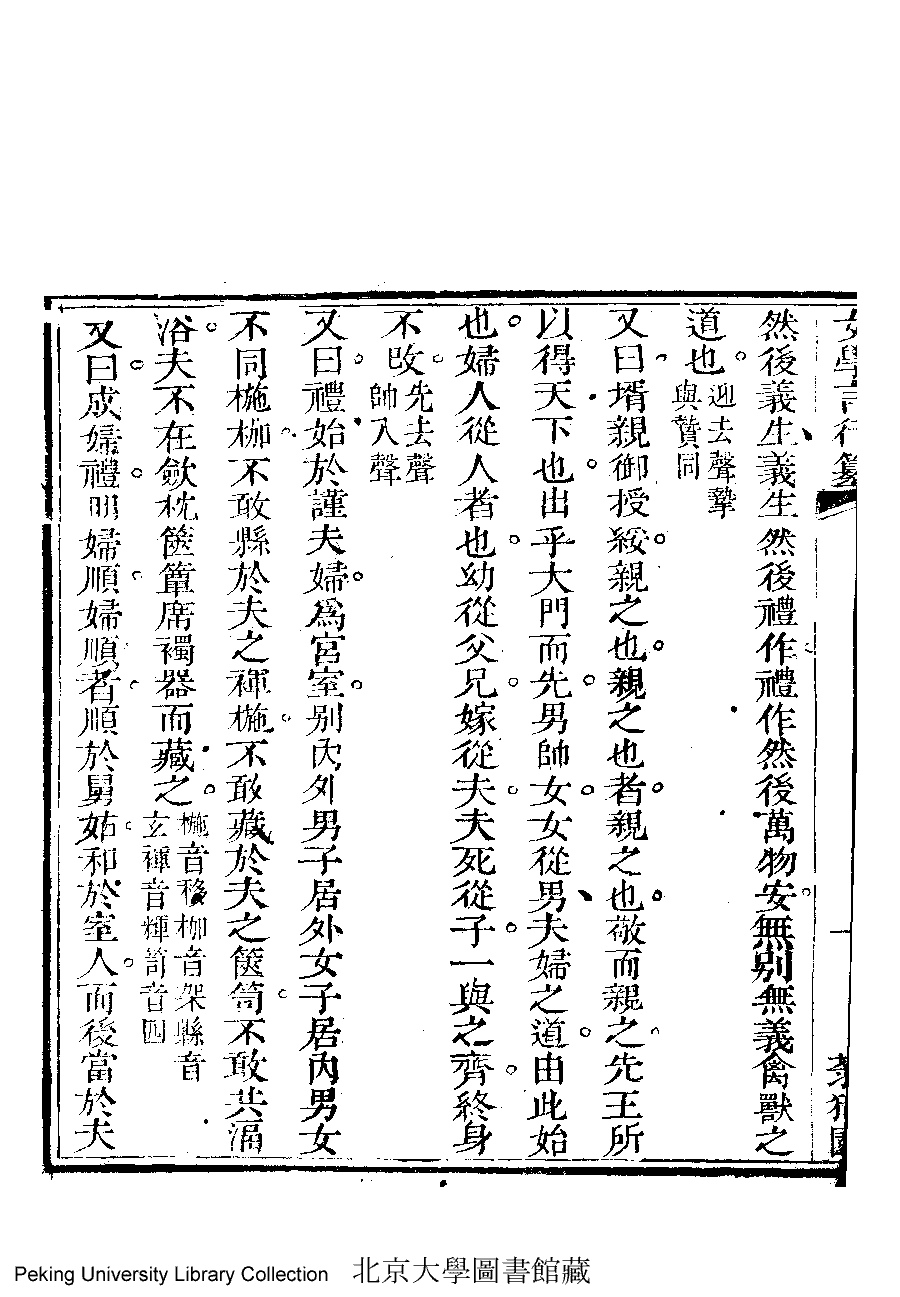 女學言行纂
一
然後義生義生然後禮作禮作然後萬物安無別無義禽獸之
道也迎去聲摯與贄同
又曰壻親御授綏親之也親之也者親之也敬而親之先王所
以得天下也出乎大門而先男帥女女從男夫婦之道由此始
也婦人從人者也幼從父兄嫁從夫夫死從子一與之齊終身
不改先去聲帥入聲
又曰禮始於謹夫婦爲宮室別內外男子居外女子居內男女
不同椸枷不敢縣於夫之楎椸不敢藏於夫之篋笥不敢共湢
浴夫不在斂枕篋簟席襡器而藏之椸音移枷音架縣音玄楎音輝笥音四
又曰成婦禮明婦順婦順者順於舅姑和於室人而後當於夫
Peking University Library Collection 北京大學圖書館藏